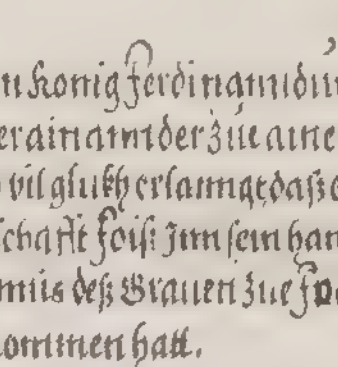 n konig Ferdinanndũ
erainannder zúe aine
vil glukh erlanngt daß
schafft soiß Jnn sein han
mus deß Grauen zue
ommen hatt.